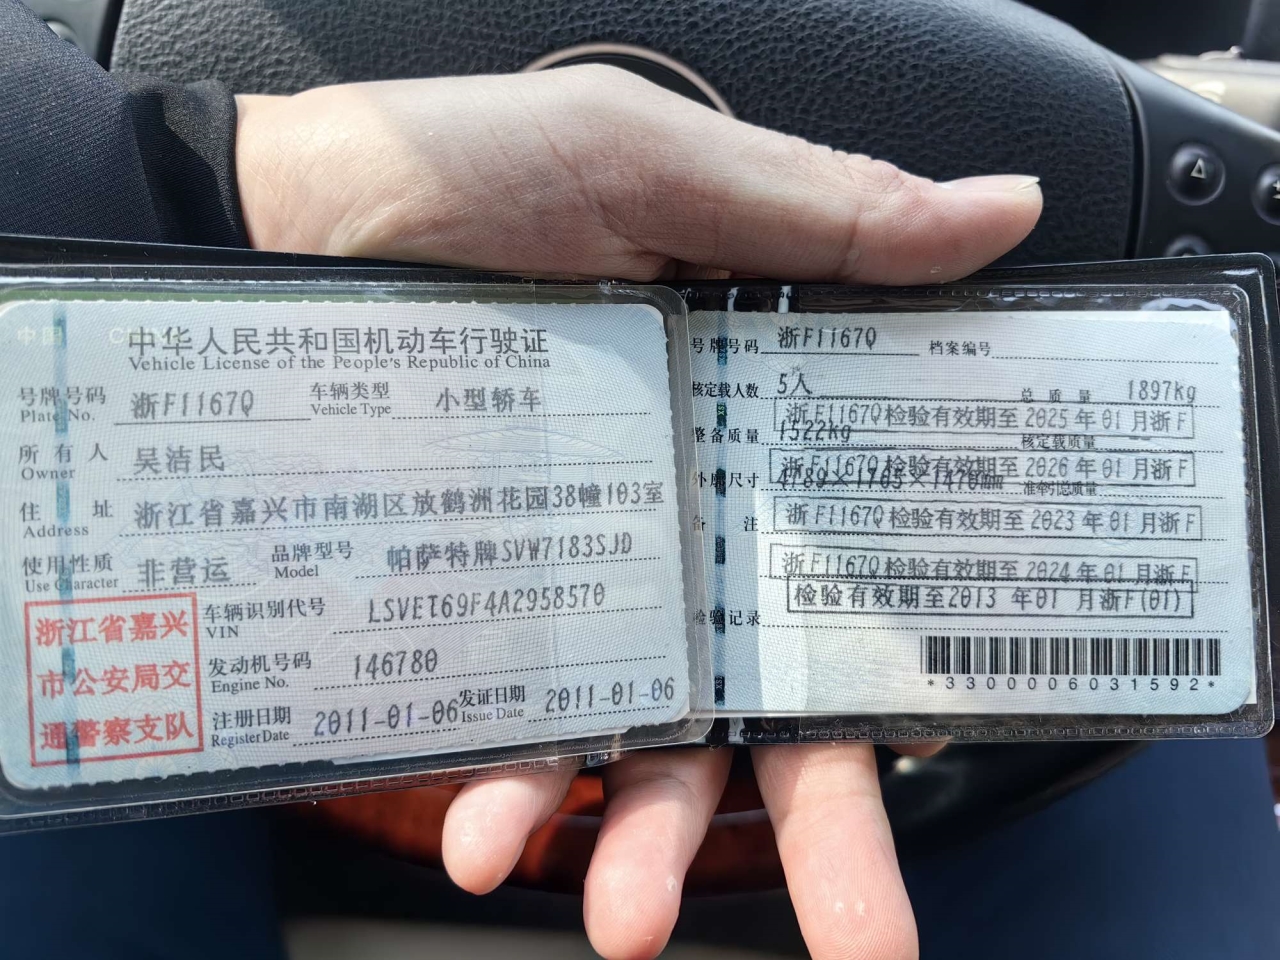 中华人民共和国机动车行驶证
Vehicle License of the People's Republic of China
号牌号码 浙F1167Q 车辆类型 小型轿车
Plate No. Vehicle Type
所有人 吴洁民
Owner
住址 浙江省嘉兴市南湖区放鹤洲花园38幢103室
Address
使用性质 非营运 品牌型号 帕萨特牌SVW7183SJD
Use Character Model
浙江省嘉兴
市公安局交
通警察支队
车辆识别代号 LSVET69F4A2958570
VIN
发动机号码 146780
Engine No.
注册日期 2011-01-06 发证日期 2011-01-06
Register Date Issue Date
号牌号码 浙F1167Q 档案编号
核定载人数 5人 总质量 1897kg
浙F1167Q检验有效期至2025年01月浙F
整备质量 1522kg 核定载质量 --
浙F1167Q检验有效期至2026年01月浙F
外廓尺寸 4789×1765×1470mm 准牵引总质量
备注 浙F1167Q检验有效期至2023年01月浙F
浙F1167Q检验有效期至2024年01月浙F
检验有效期至2013年01月浙F(01)
检验记录
*3300006031592*